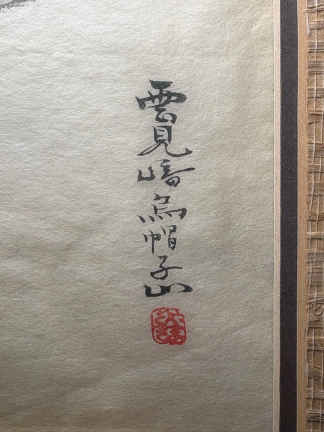 雲見崎烏帽子山